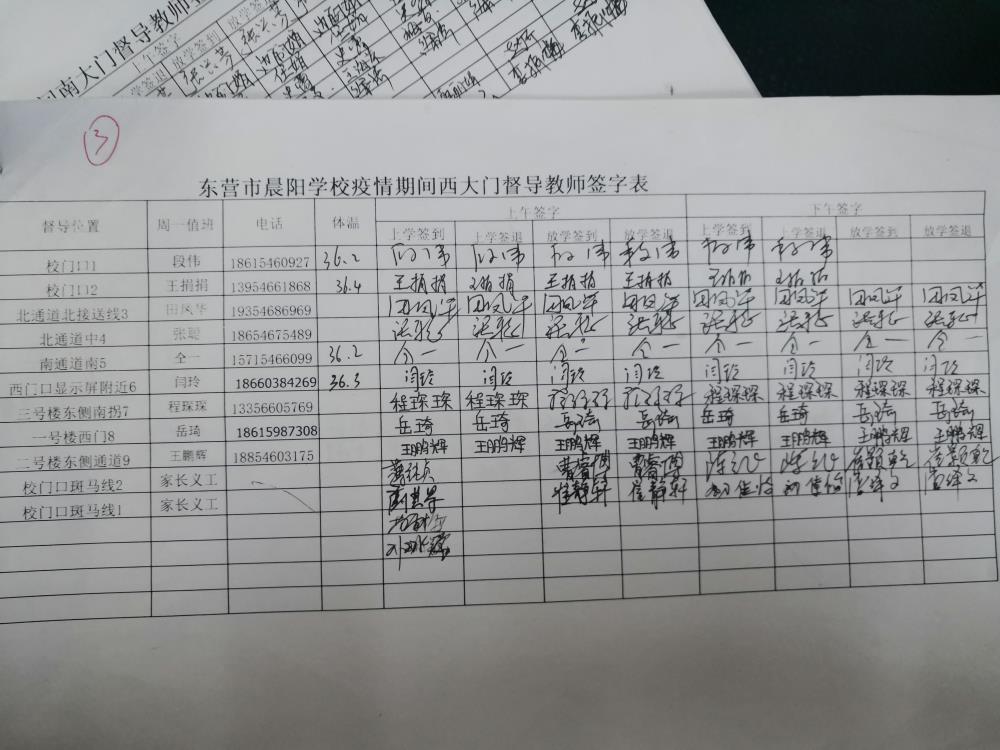 河南大门督导教师
上午签字
学签退 放学签到 放学签退
张兴芳 张兴芳
3
东营市晨阳学校疫情期间西大门督导教师签字表
督导位置 周一值班 电话 体温 上午签字 下午签字
上学签到 上学签退 放学签到 放学签退 上学签到 上学签退 放学签到 放学签退
校门口1 段伟 18615460927 36.2 段伟 段伟 段伟 段伟 段伟 段伟
校门口2 王捐捐 13954661868 36.4 王捐捐 王捐捐 王捐捐 王捐捐 王捐捐 王捐捐
北通道北接送线3 田凤华 19354686969 田凤华 田凤华 田凤华 田凤华 田凤华 田凤华 田凤华 田凤华
北通道中4 张聪 18654675489 张聪 张聪 张聪 张聪 张聪 张聪 张聪 张聪
南通道南5 仝一 15715466099 36.2 仝一 仝一 仝一 仝一 仝一 仝一 仝一 仝一
西门口显示屏附近6 闫玲 18660384269 36.3 闫玲 闫玲 闫玲 闫玲 闫玲 闫玲 闫玲 闫玲
三号楼东侧南拐7 程琛琛 13356605769 程琛琛 程琛琛 程琛琛 程琛琛 程琛琛 程琛琛 程琛琛 程琛琛
一号楼西门8 岳琦 18615987308 岳琦 岳琦 岳琦 岳琦 岳琦 岳琦 岳琦 岳琦
二号楼东侧通道9 王鹏辉 18854603175 王鹏辉 王鹏辉 王鹏辉 王鹏辉 王鹏辉 王鹏辉 王鹏辉 王鹏辉
校门口斑马线2 家长义工 曹睿倩 曹睿倩
校门口斑马线1 家长义工 崔静轩 崔静轩